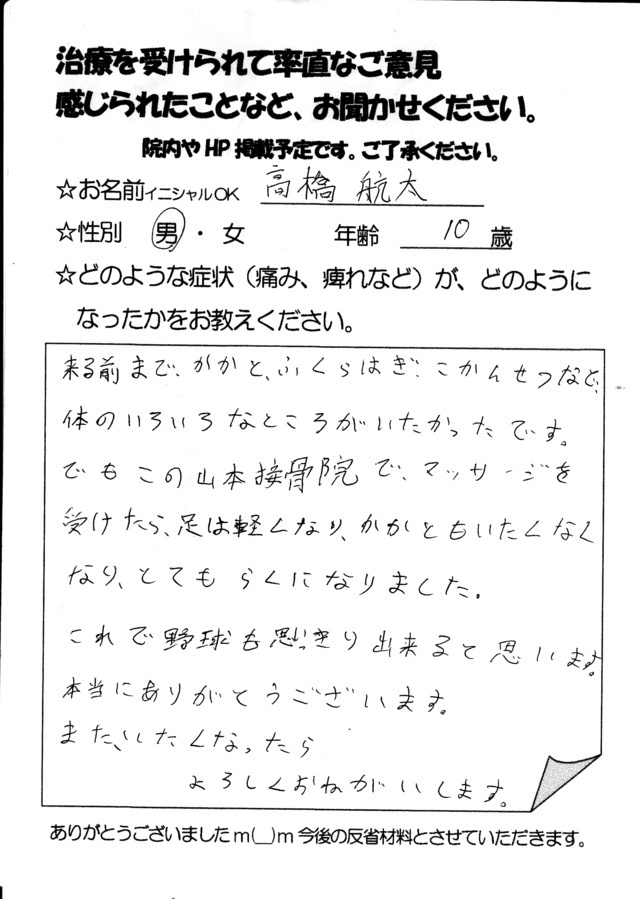 治療を受けられて率直なご意見
感じられたことなど、お聞かせください。
院内やHP掲載予定です。ご了承ください。
☆お名前イニシャルOK 高橋 航太
☆性別 男・女 年齢 10 歳
☆どのような症状(痛み、痺れなど)が、どのように
なったかをお教えください。
来る前まで、かかと、ふくらはぎ、こかんせつなど、
体のいろいろなところがいたかったです。
でもこの山本接骨院で、マッサージを
受けたら、足は軽くなり、かかともいたくなく
なり、とてもらくになりました。
これで野球も思いっきり出来ると思います。
本当にありがとうございます。
また、いたくなったら
よろしくおねがいします。
ありがとうございましたm(__)m今後の反省材料とさせていただきます。